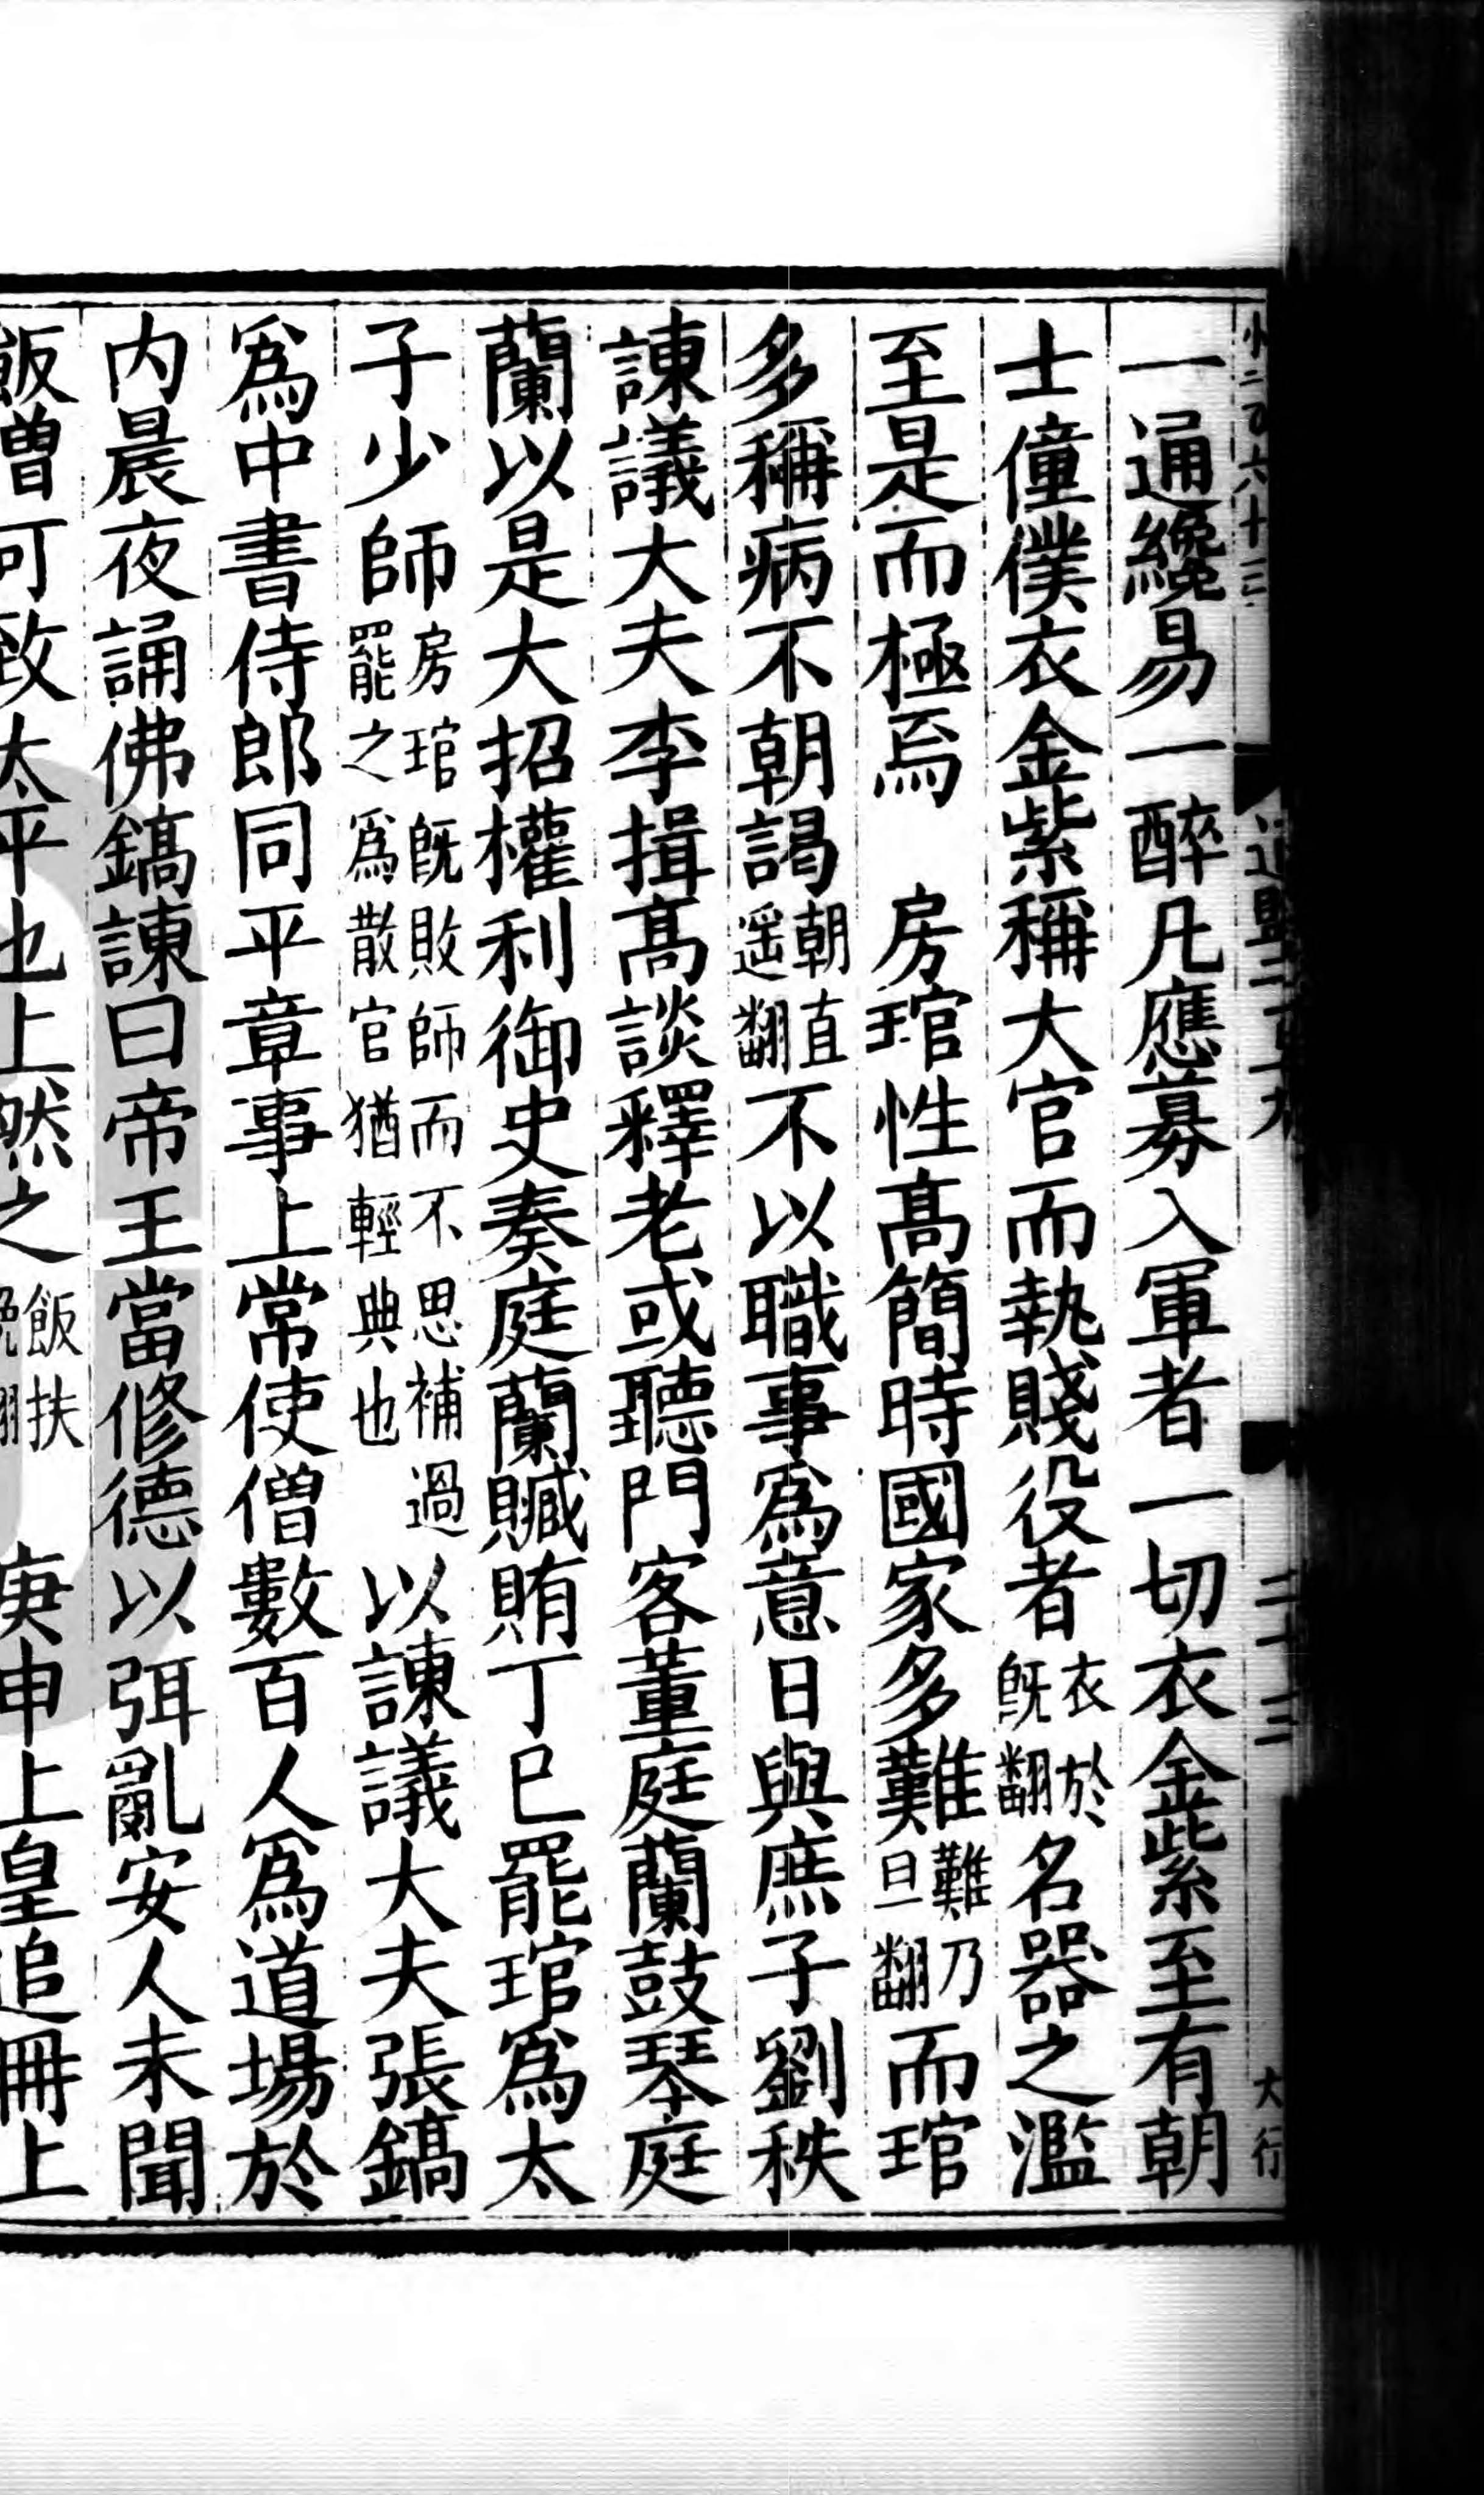 一通纔易一醉凡應募入軍者一切衣金紫至有朝
士僮僕衣金紫稱大官而執賤役者衣於既翻名器之濫
至是而極焉　房琯性高簡時國家多難難乃旦翻而琯
多稱病不朝謁朝直遥翻不以職事爲意日與庶子劉秩
諫議大夫李揖高談釋老或聽門客董庭蘭鼓琴庭
蘭以是大招權利御史奏庭蘭贓賄丁巳罷琯爲太
子少師房琯既敗師而不思補過罷之爲散官猶輕典也以諫議大夫張鎬
爲中書侍郎同平章事上常使僧數百人爲道場於
内晨夜誦佛鎬諫曰帝王當修德以弭亂安人未聞
飯曾可致太平也上然之飯扶晚翻　庚申上皇追冊上